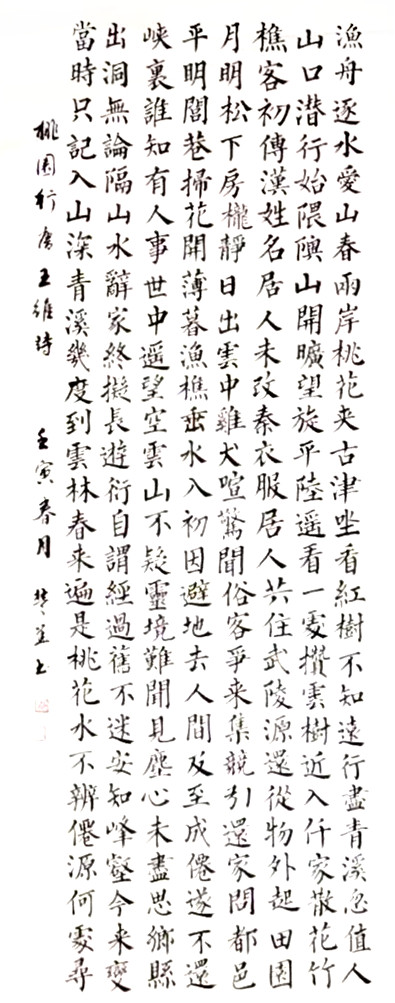 漁舟逐水愛山春兩岸桃花夾古津坐看紅樹不知遠行盡青溪忽值人
山口潛行始隈隩山開曠望旋平陸遥看一處攢雲樹近入仟家散花竹
樵客初傳漢姓名居人未改秦衣服居人共住武陵源還從物外起田園
月明松下房櫳靜日出雲中雞犬喧驚聞俗客爭来集競引還家問都邑
平明閭巷掃花開薄暮漁樵乘水入初因避地去人間及至成僊遂不還
峽裏誰知有人事世中遥望空雲山不疑靈境難聞見塵心未盡思鄉縣
出洞無論隔山水辭家終擬長遊衍自謂經過舊不迷安知峰壑今来變
當時只記入山深青溪幾度到雲林春来遍是桃花水不辨僊源何處尋
桃園行唐王維詩 壬寅春月